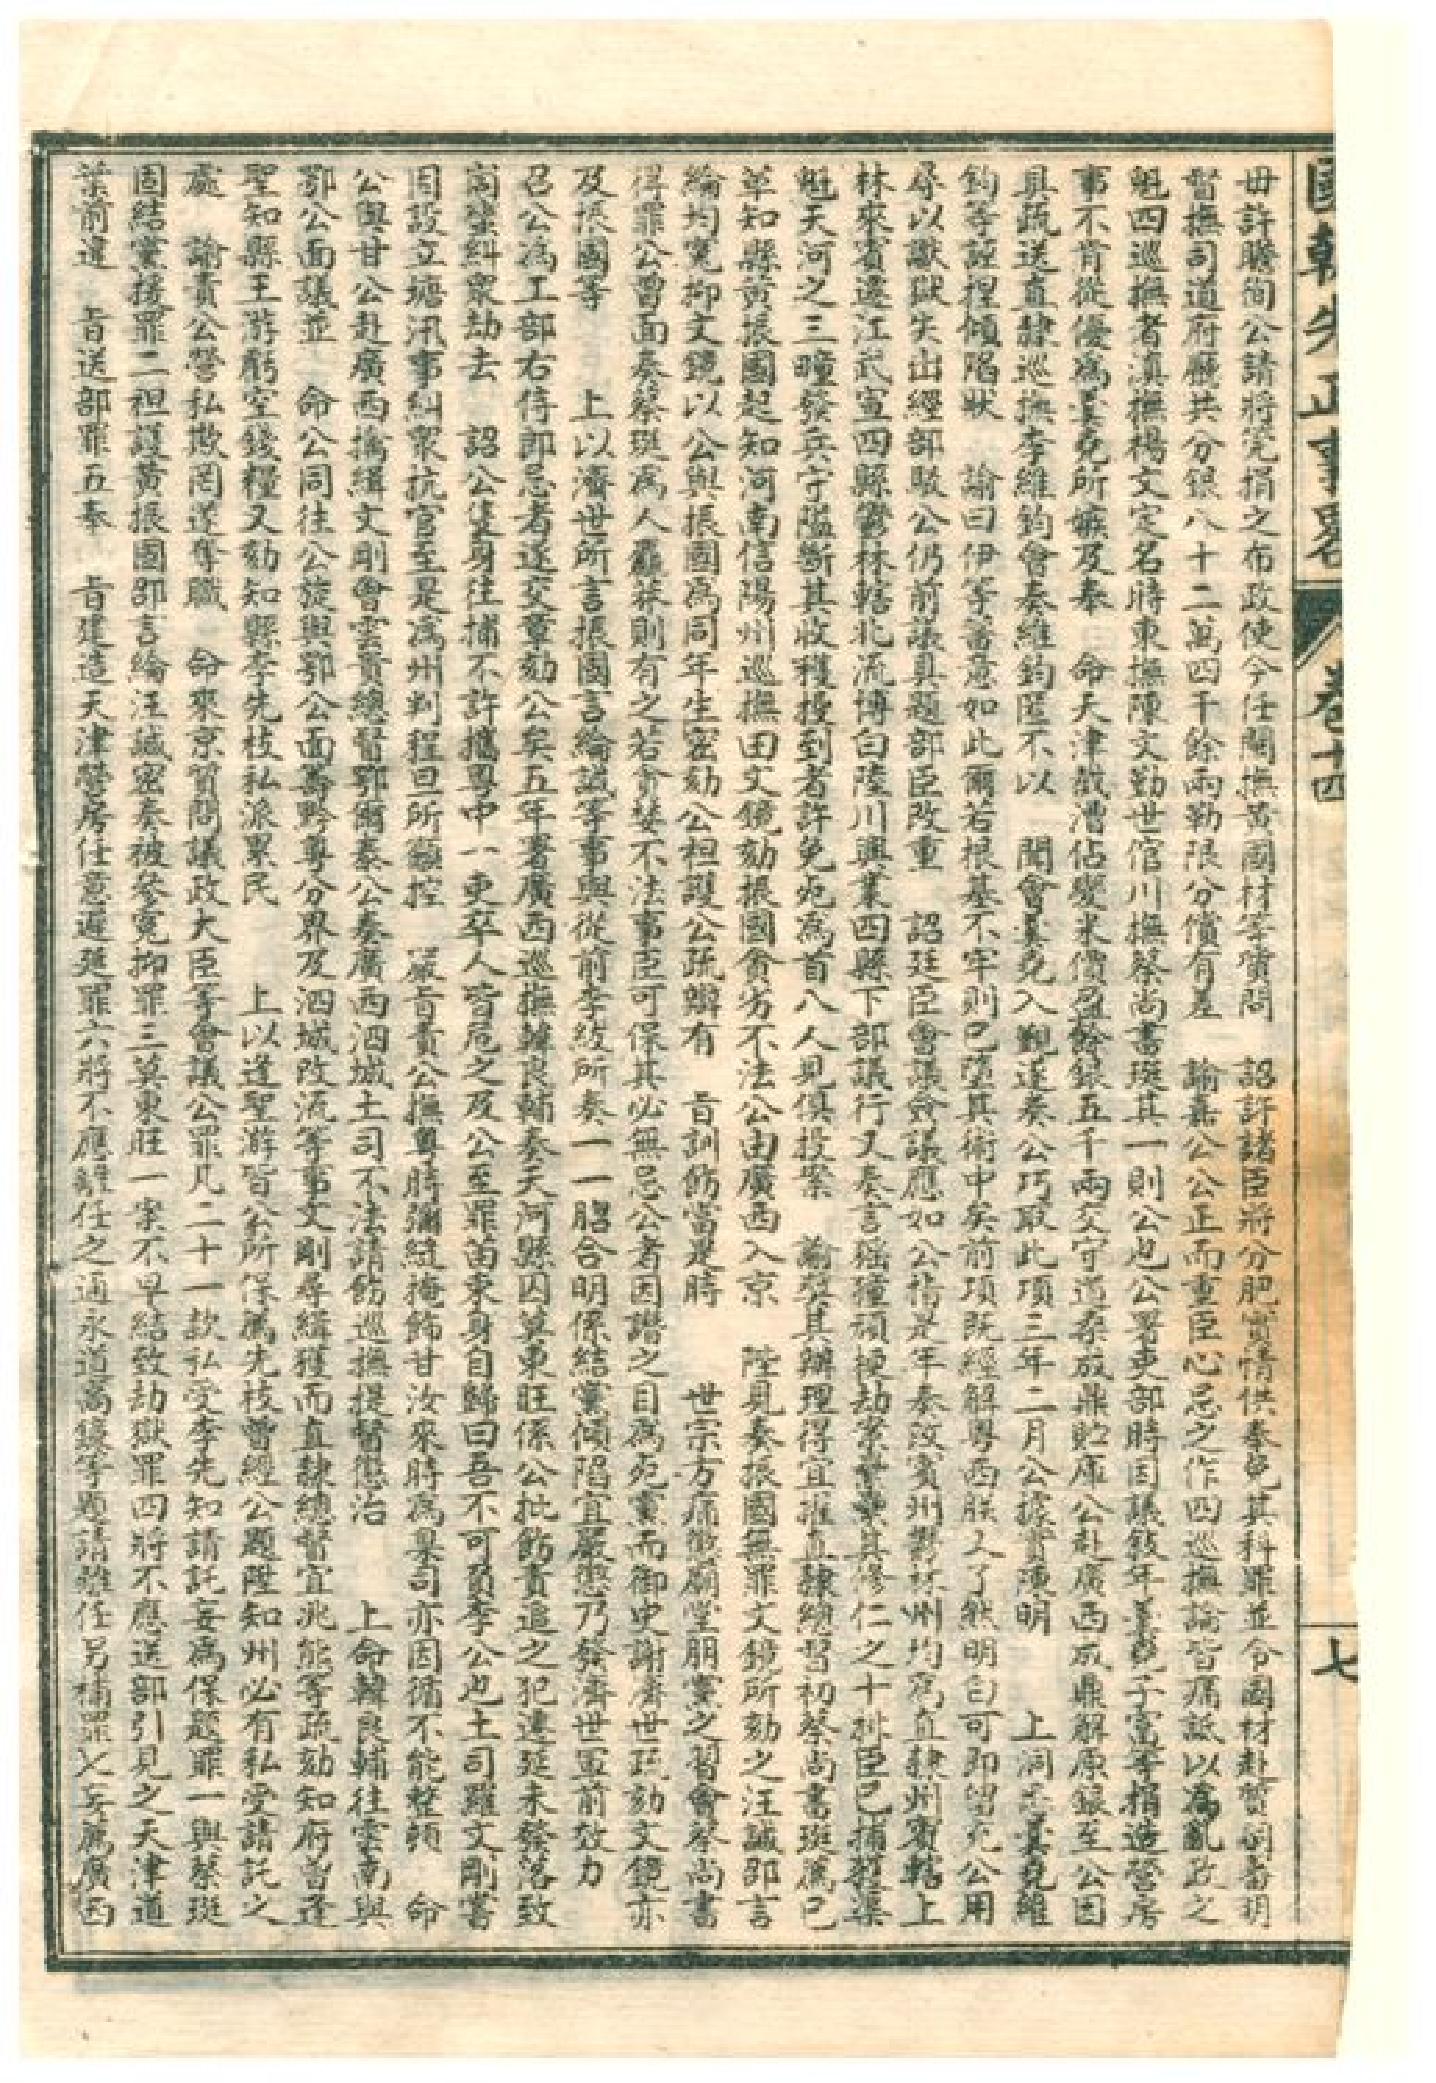 國朝先正事略 卷十四 七
毋許瞻徇公請將冤捐之布政使今任閩撫黃國材等質問 詔許諸臣將分肥實情供奉免其科罪並令國材赴質嗣番玥
督撫司道府廳共分銀八十二萬四千餘兩勒限分償有差 諭嘉公公正而重臣心忌之作四巡撫論皆痛詆以爲亂政之
魁四巡撫者滇撫楊文定名時東撫陳文勤世倌川撫蔡尚書珽其一則公也公署吏部時因議敘年羹堯子富等捐造營房
事不肯從優爲羹堯所嫉及奉 命天津截漕估變米價盈餘銀五千兩交守道桑成鼎貯庫公赴廣西成鼎解原銀至公因
具疏送直隸巡撫李維鈞會奏維鈞匿不以 聞會羹堯入覲遂奏公巧取此項三年二月公據實陳明 上洞悉羹堯維
鈞等誣捏傾陷狀 諭曰伊等蓄意如此爾若根基不牢則已墮其術中矣前項既經解粵西朕又了然明白可即留充公用
尋以讞獄失出經部駁公仍前議具題部臣改重 詔廷臣會議僉議應如公指是年奏改賓州鬱林州均爲直隸州賓轄上
林來賓遷江武宣四縣鬱林轄北流博白陸川興業四縣下部議行又奏言猺獞頑梗劫案纍纍其修仁之十排臣已捕獲渠
魁天河之三疃發兵守隘斷其收穫擾到者許免死爲首八人見俱投案 諭獎其辦理得宜擢直隸總督初蔡尚書珽薦已
革知縣黃振國起知河南信陽州巡撫田文鏡劾振國貪劣不法公由廣西入京 陛見奏振國無罪文鏡所劾之汪諴邵言
綸均冤抑文鏡以公與振國爲同年生密劾公袒護公疏辯有 旨訓飭當是時 世宗方痛懲廟堂朋黨之習會蔡尚書
得罪公曾面奏蔡珽爲人麤莽則有之若貪婪不法事臣可保其必無忌公者因譖之目爲死黨而御史謝濟世疏劾文鏡亦
及振國等 上以濟世所言振國言綸諴等事與從前李紱所奏一一脗合明係結黨傾陷宜嚴懲乃發濟世軍前效力
召公爲工部右侍郎忌者遂交章劾公矣五年署廣西巡撫韓良輔奏天河縣囚莫東旺係公批飭責追之犯遲延未發落致
高蠻糾衆劫去 詔公隻身往捕不許攜粵中一吏卒人皆危之及公至罪酋束身自歸曰吾不可負李公也土司羅文剛嘗
因設立塘汛事糾衆抗官至是爲州判程旦所籲控 嚴旨責公撫粵時彌縫掩飾甘汝來時爲臬司亦因循不能整頓 命
公與甘公赴廣西擒緝文剛會雲貴總督鄂爾泰公奏廣西泗城土司不法請飭巡撫提督懲治 上命韓良輔往雲南與
鄂公面議並 命公同往公旋與鄂公面籌黔粵分界及泗城改流等事文剛尋緝獲而直隸總督宜兆熊等疏劾知府曾逢
聖知縣王游虧空錢糧又劾知縣李先枝私派累民 上以逢聖游皆公所保薦先枝曾經公題陞知州必有私受請託之
處 諭責公營私欺罔遂奪職 命來京質問議政大臣等會議公罪凡二十一款私受李先知請託妄爲保題罪一與蔡珽
固結黨援罪二袒護黃振國邵言綸汪諴密奏被參冤抑罪三莫東旺一案不早結致劫獄罪四將不應送部引見之天津道
葉前違 旨送部罪五奉 旨建造天津營房任意遲延罪六將不應離任之通永道高鑛等題請離任另補罪七妄薦廣西